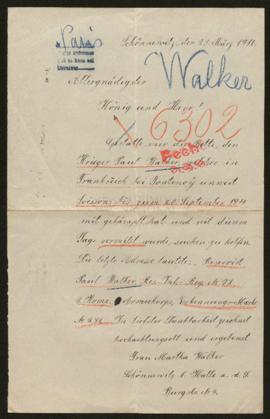 Paris
Schönnewitz, den 23. März 1911.
Walker
Allergnädigster
König und Herr!
6302
Gestatte mir die Bitte, den
Krieger Paul Walker, welcher in
Frankreich bei Fontenoy unweit
Soissons bis zum 20. September 1914
mit gekämpft hat und mit diesem
Tage vermißt wurde, suchen zu helfen.
Die letzte Adresse lautete: Reservist
Paul Walker, Res. Inf. Reg. No.
Armeekorps, Erkennungs-Marke
In tiefster Dankbarkeit zeichnet
hochachtungsvoll und ergebenst
Frau Martha Walker
Schönnewitz b. Halle a. d. S.